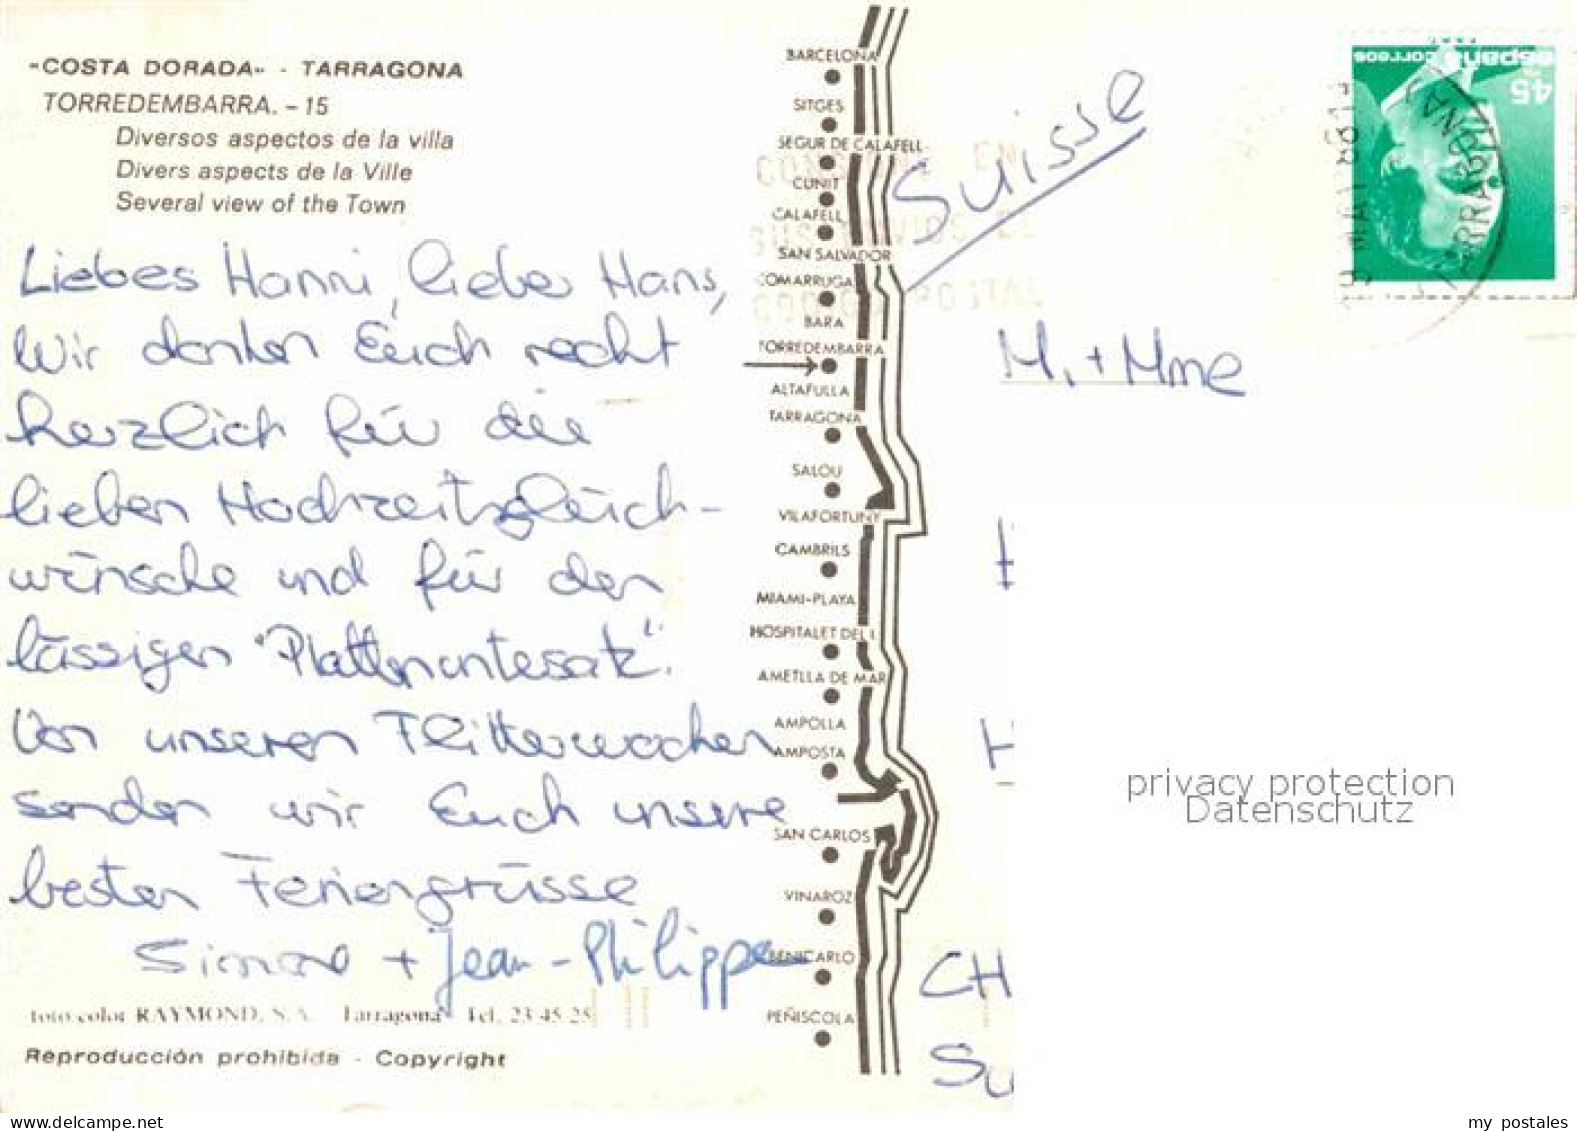 "COSTA DORADA" - TARRAGONA
TORREDEMBARRA. - 15
Diversos aspectos de la villa
Divers aspects de la Ville
Several view of the Town
Liebes Hanni, lieber Hans,
Wir danken Euch recht
herzlich für die
lieben Hochzeitsglück-
wünsche und für den
lässigen "Plattenuntesatz".
Von unseren Flitterwochen
senden wir Euch unsere
besten Feriengrüsse
Simone + Jean-Philippe
foto color RAYMOND, S.A. Tarragona Tel. 23 45 25
Reproducción prohibida - Copyright
BARCELONA
SITGES
SEGUR DE CALAFELL
CUNIT
CALAFELL
SAN SALVADOR
COMARRUGA
BARA
TORREDEMBARRA
ALTAFULLA
TARRAGONA
SALOU
VILAFORTUNY
CAMBRILS
MIAMI-PLAYA
HOSPITALET DEL I.
AMETLLA DE MAR
AMPOLLA
AMPOSTA
SAN CARLOS
VINAROZ
BENICARLO
PEÑISCOLA
Suisse
45
españa correos
(TARRAGONA)
M. + Mme
H
H
CH
Su
privacy protection
Datenschutz
my postales
www.delcampe.net